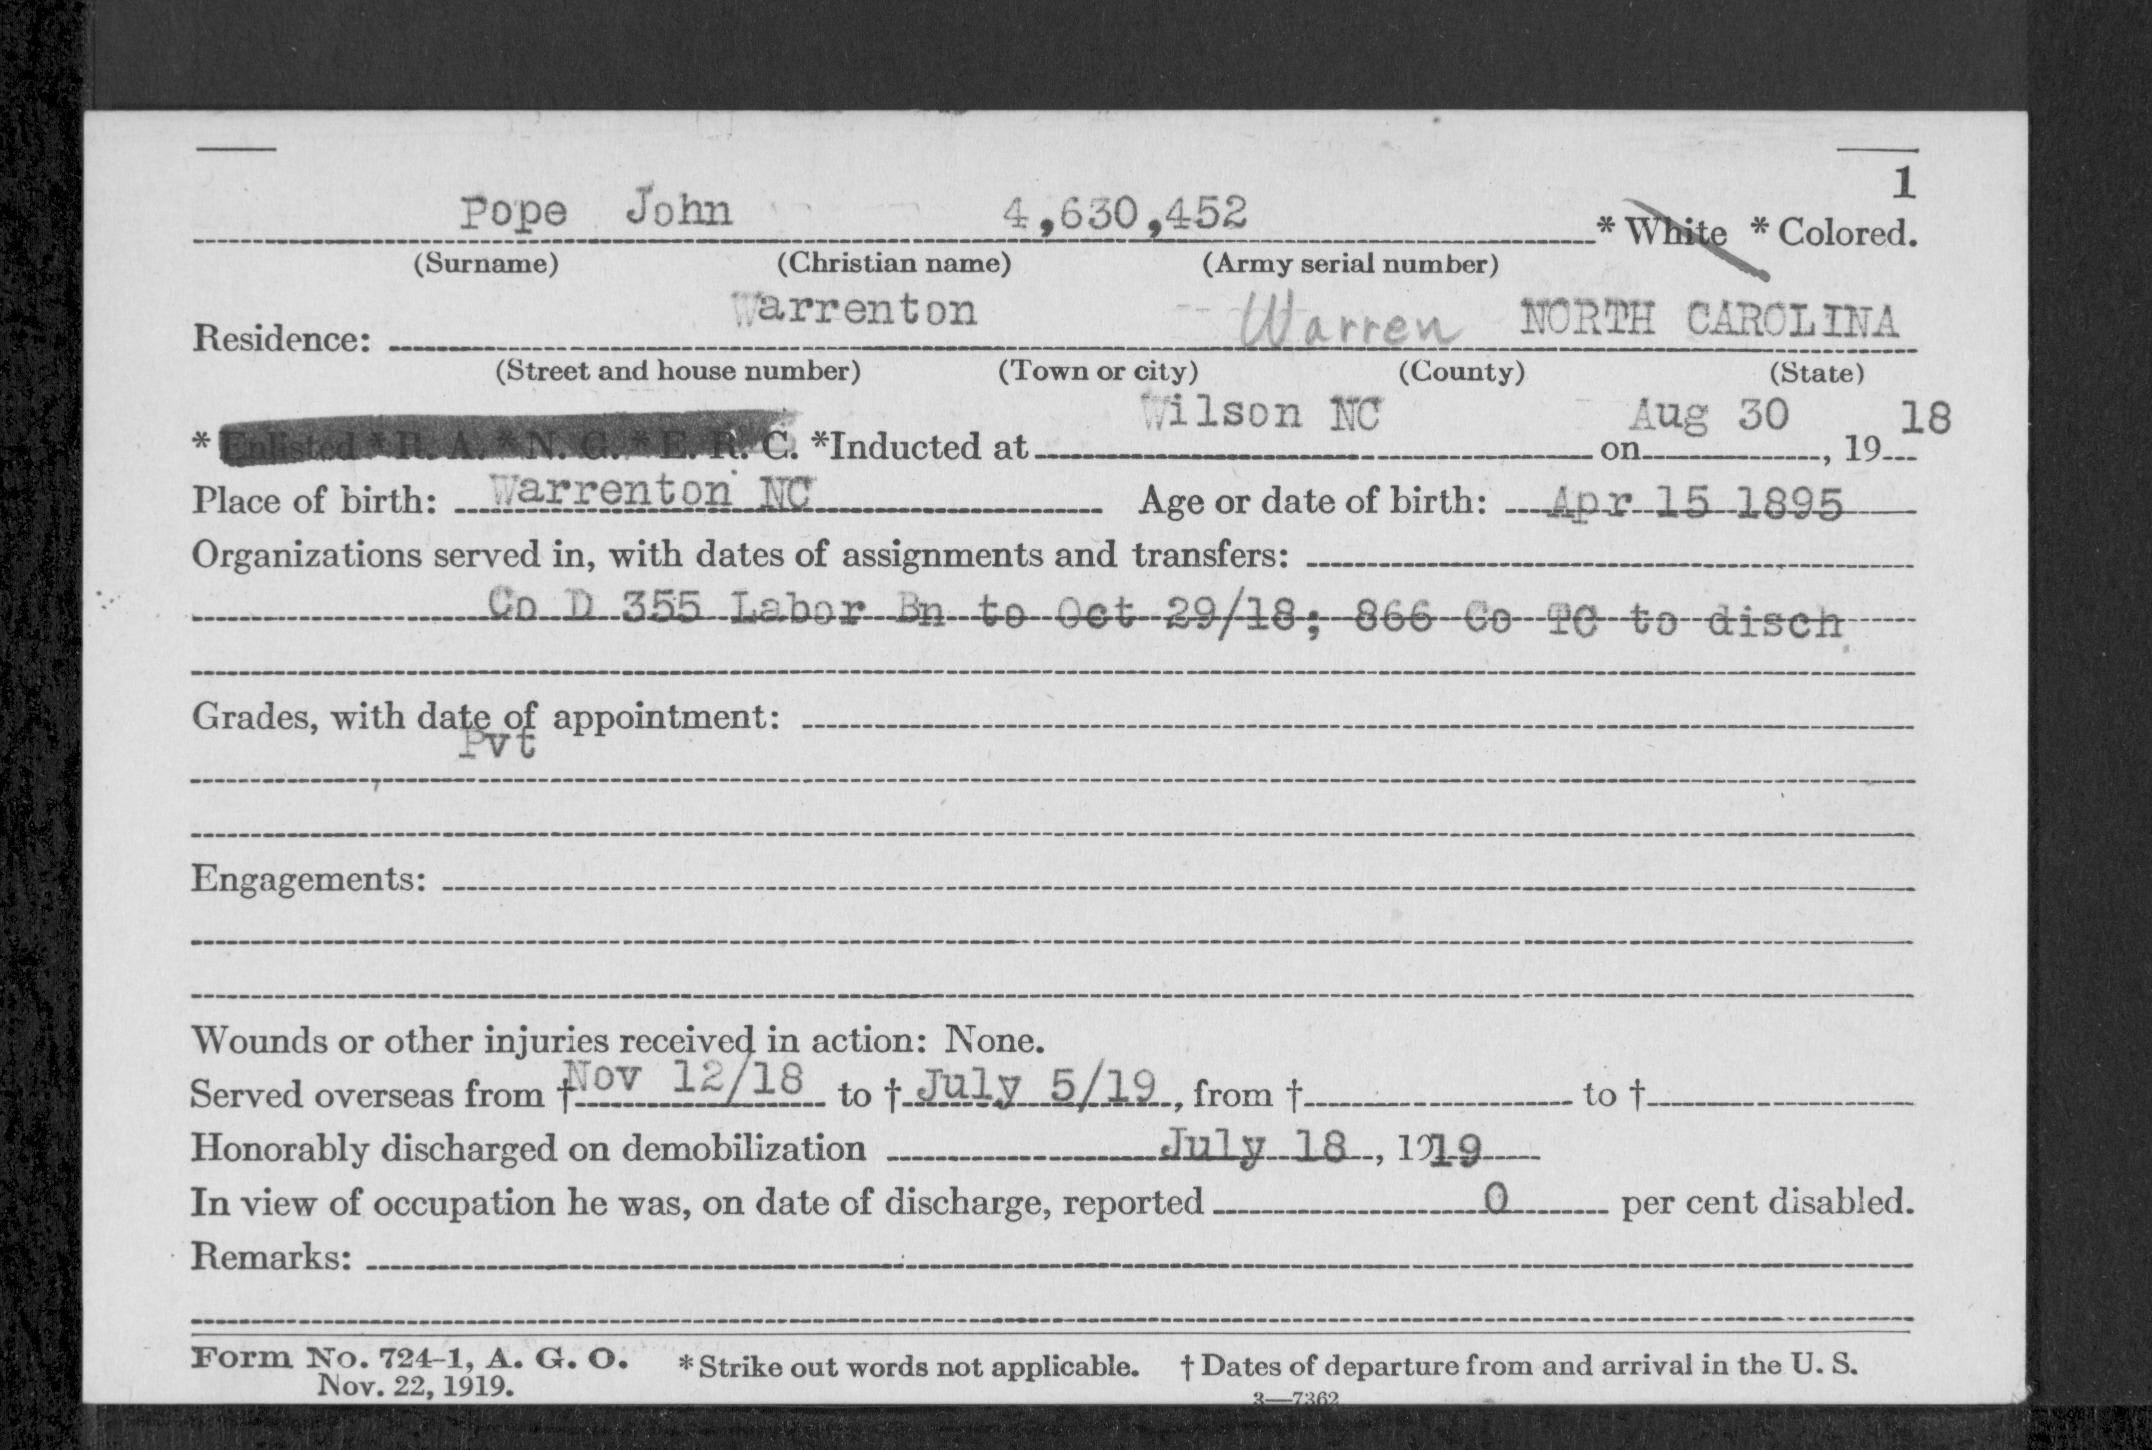 1
Pope John 4,630,452 * White * Colored.
(Surname) (Christian name) (Army serial number)
Residence: Warrenton Warren NORTH CAROLINA
(Street and house number) (Town or city) (County) (State)
* Enlisted * R. A. * N. G. * E. R. C. *Inducted at Wilson NC on Aug 30, 19 18
Place of birth: Warrenton NC Age or date of birth: Apr 15 1895
Organizations served in, with dates of assignments and transfers:
Co D 355 Labor Bn to Oct 29/18; 866 Co TC to disch
Grades, with date of appointment:
Pvt
Engagements:
Wounds or other injuries received in action: None.
Served overseas from † Nov 12/18 to † July 5/19, from † to †
Honorably discharged on demobilization July 18, 1919
In view of occupation he was, on date of discharge, reported 0 per cent disabled.
Remarks:
Form No. 724-1, A. G. O. * Strike out words not applicable. † Dates of departure from and arrival in the U. S.
Nov. 22, 1919.
3—7362